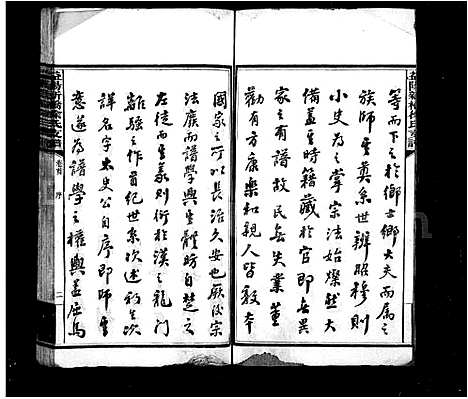 等而下之於鄉士鄉大夫而屬之
族師其奠系世辨昭穆則
小史為之掌宗法始燦然大
備蓋其時籍藏於官即無異
家之有譜故民無失業董
勸有方康樂和親人皆敦本
國家之所以長治久安也厥後宗
法廢而譜學興其體昉自楚之
左徒而其義則衍於漢之龍門
離騷之作首紀世系次述初生次
詳名字太史公自序即師其
意遂為譜學之權輿蓋屈馬
卷首
序
二